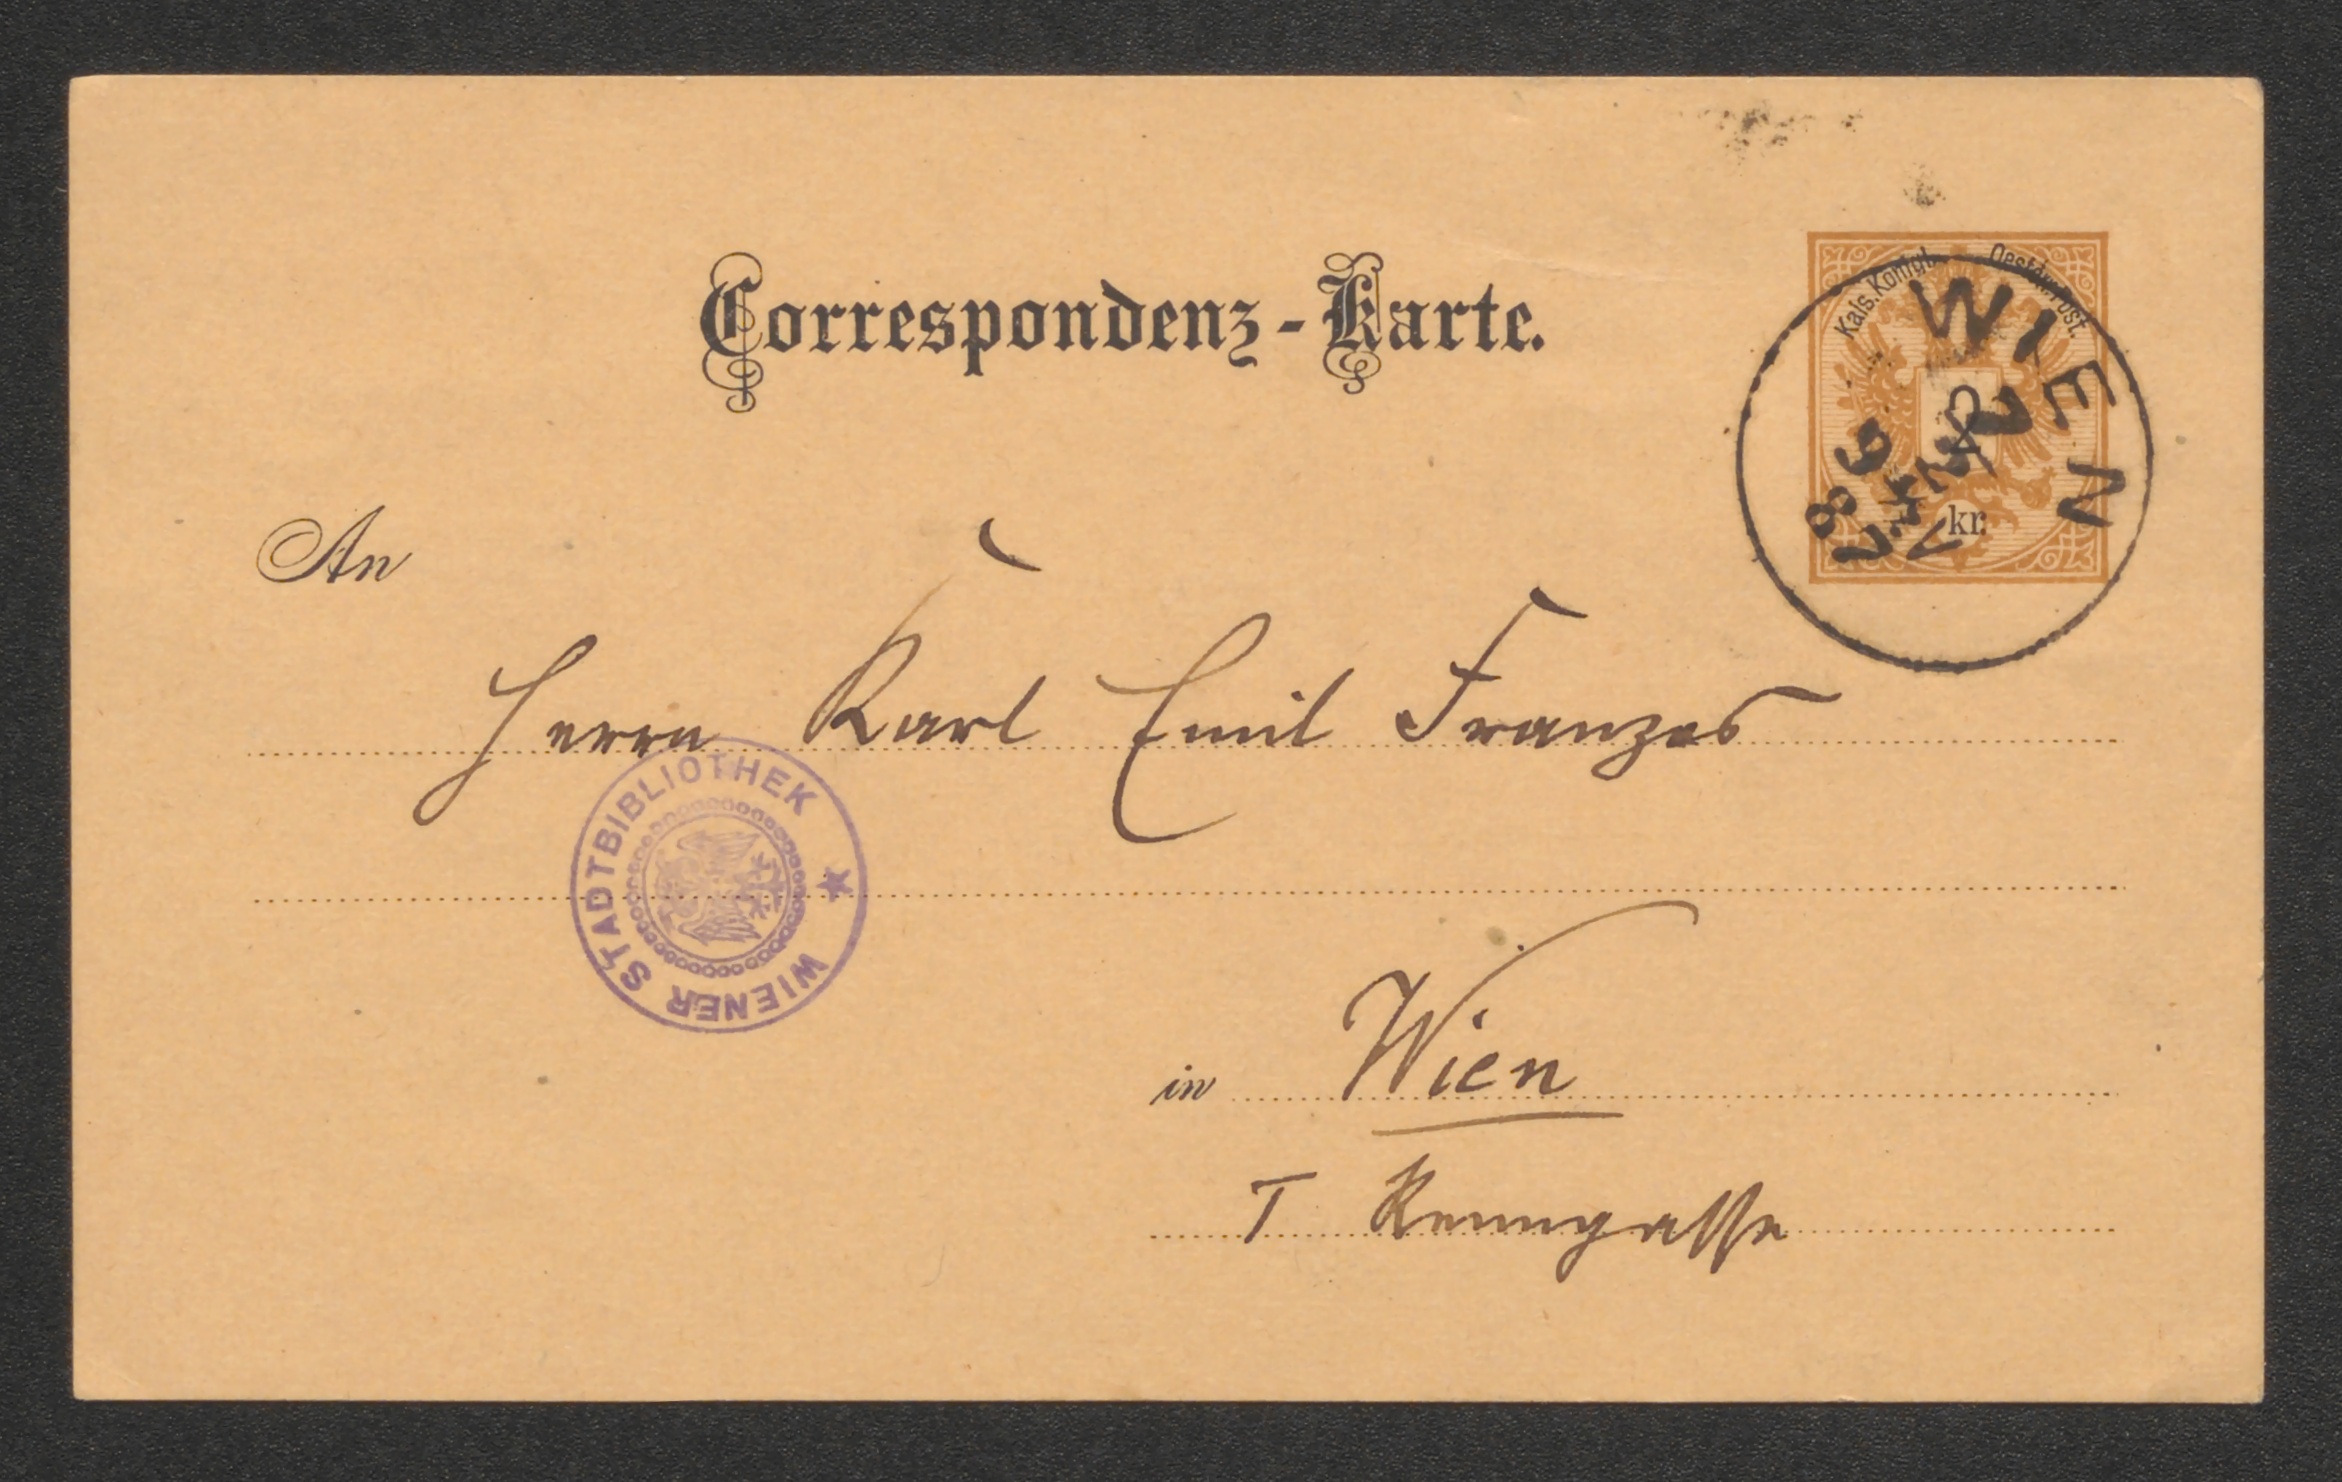 Correspondenz-Karte.
Kais. Königl. Oesterr. Post.
2
kr.
WIEN
An
Herrn Karl Emil Franzos
WIENER STADTBIBLIOTHEK
in Wien
I Renngasse